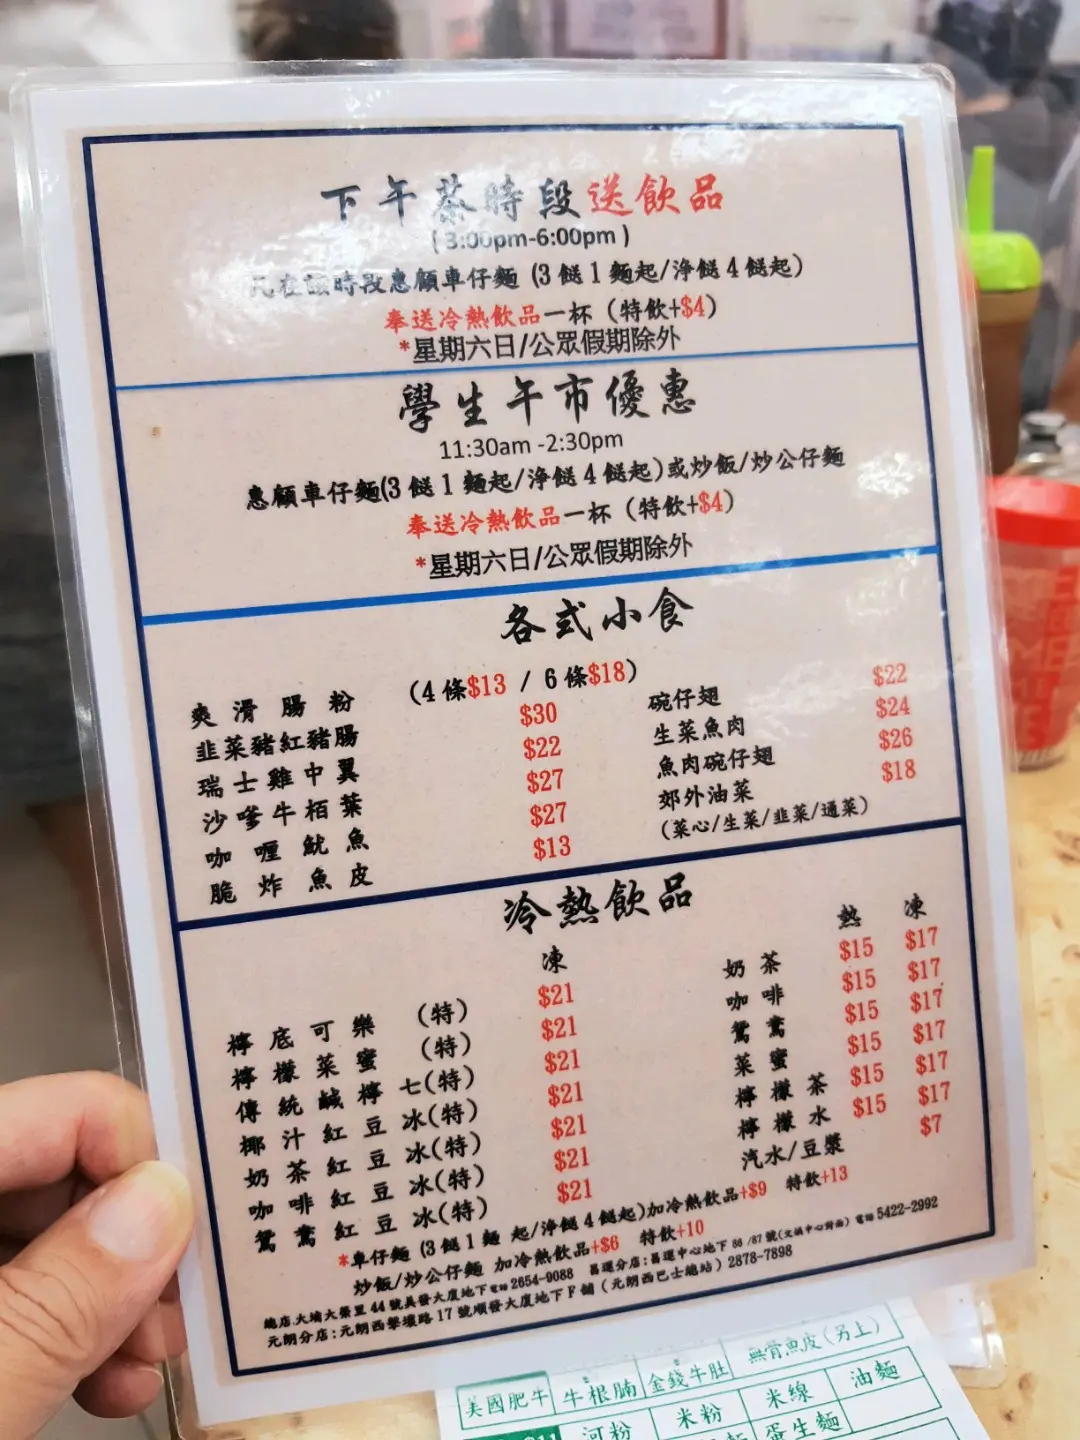 下午茶時段送飲品
(3:00pm-6:00pm)
凡在該時段惠顧車仔麵 (3 餸 1 麵起/淨餸 4 餸起)
奉送冷熱飲品一杯 (特飲+$4)
*星期六日/公眾假期除外
學生午市優惠
11:30am -2:30pm
惠顧車仔麵(3 餸 1 麵起/淨餸 4 餸起)或炒飯/炒公仔麵
奉送冷熱飲品一杯 (特飲+$4)
*星期六日/公眾假期除外
各式小食
爽滑腸粉 (4 條$13 / 6 條$18)
韭菜豬紅豬腸 $30
瑞士雞中翼 $22
沙嗲牛栢葉 $27
咖喱魷魚 $27
脆炸魚皮 $13
碗仔翅 $22
生菜魚肉 $24
魚肉碗仔翅 $26
郊外油菜 $18
(菜心/生菜/韭菜/通菜)
冷熱飲品
凍
檸底可樂 (特) $21
檸檬菜蜜 (特) $21
傳統鹹檸七(特) $21
椰汁紅豆冰(特) $21
奶茶紅豆冰(特) $21
咖啡紅豆冰(特) $21
鴛鴦紅豆冰(特) $21
熱 凍
奶茶 $15 $17
咖啡 $15 $17
鴛鴦 $15 $17
菜蜜 $15 $17
檸檬茶 $15 $17
檸檬水 $15 $17
汽水/豆漿 $7
*車仔麵 (3 餸 1 麵起/淨餸 4 餸起)加冷熱飲品+$9 特飲+13
炒飯/炒公仔麵 加冷熱飲品+$6 特飲+10
總店:大埔大榮里 44 號美發大廈地下 電話 2654-9088 昌運分店:昌運中心地下 86 /87 號(文娛中心對面) 電話 5422-2992
元朗分店:元朗西擊壤路 17 號順發大廈地下 F 舖 (元朗西巴士總站) 2878-7898
美國肥牛 牛根腩 金錢牛肚 無骨魚皮(另上)
河粉 米粉 米線 油麵
蛋生麵